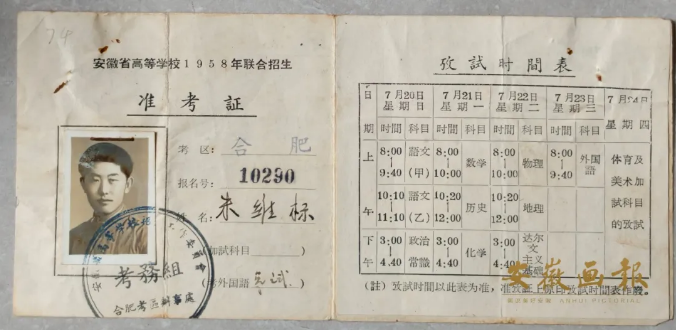 安徽省高等学校1958年联合招生
准考证
考区: 合肥
报名号: 10290
姓名: 朱维标
(加试科目)
(考外国語) 免试
考務組
合肥考区辦事處
攷試時間表
日期 7月20日 星期日 7月21日 星期一 7月22日 星期二 7月23日 星期三 7月24日 星期四
時間 科目 時間 科目 時間 科目 時間 科目
上午 8:00-9:40 語文(甲) 8:00-10:00 数学 8:00-10:00 物理 8:00-9:40 外国語 体育及美术加試科目的攷試
10:10-11:10 語文(乙) 10:20-12:00 历史 10:20-12:00 地理
下午 3:00-4.40 政治常識 3:00-4.40 化学 3:00-4.40 达尔文主义基礎
(註) 攷試時間以此表为准,准攷証上原印攷試時間表作廢。
安徽画报
ANHUI PICTORIAL